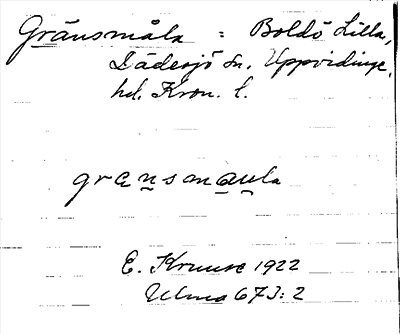 Gränsmåla : Boldö Lilla,
Dädesjö sn. Uppvidinge
hd. Kron. l.
gransmaula
E. Kruuse 1922
Ulma 673:2